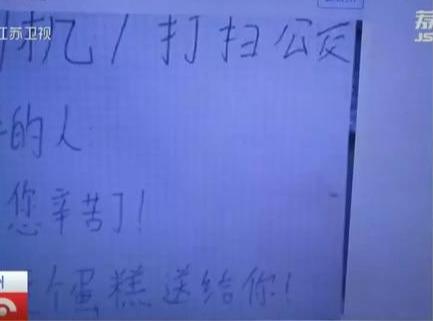 江苏卫视
机/打扫公交
的人
您辛苦了!
个蛋糕送给你!
JS
州